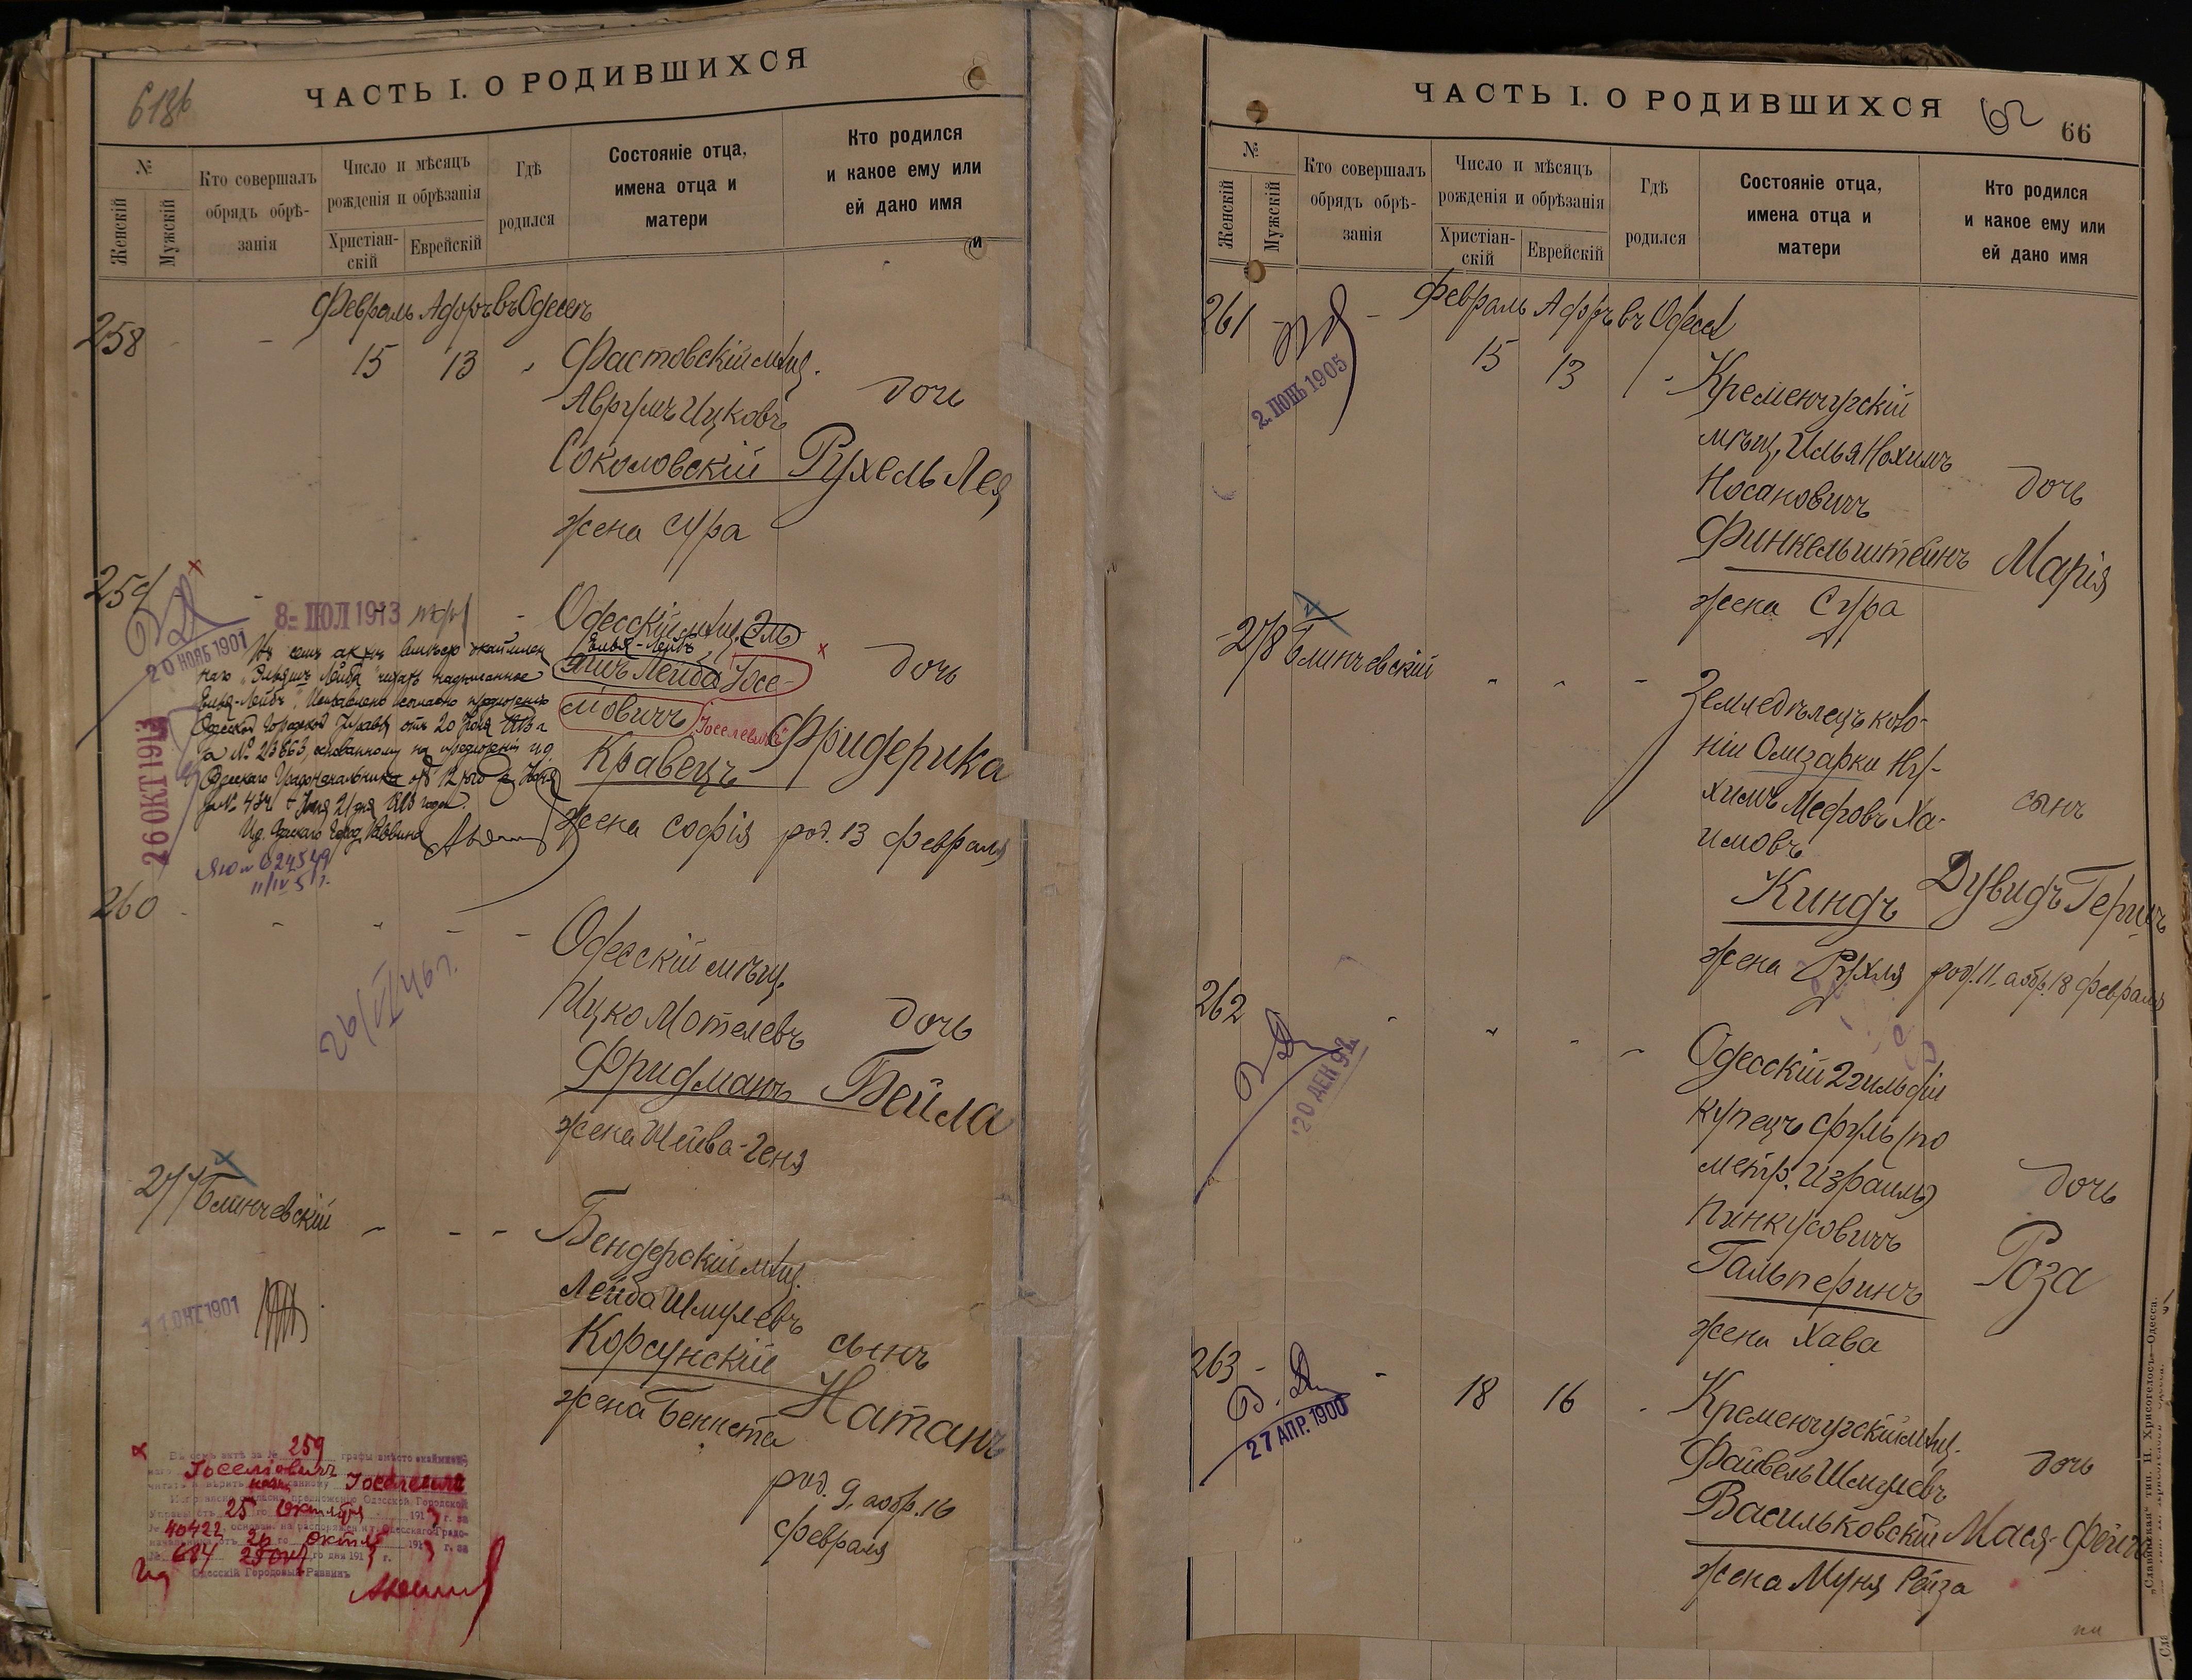 618б
ЧАСТЬ I. О РОДИВШИХСЯ
№
Женскій
Мужскій
Кто совершалъ
обрядъ обрѣ-
занія
Число и мѣсяцъ
рожденія и обрѣзанія
Христіан-
скій
Еврейскій
Гдѣ
родился
Состояніе отца,
имена отца и
матери
Кто родился
и какое ему или
ей дано имя
и
Февраль Адоръ въ Одессѣ
258 - - 15 13 Фастовскій мѣщ.
Аврумъ Ицковъ дочь
Соколовскій Рухель Лея
жена Сура
259
8 - ІЮЛ 1913
20 НОЯБ 1901
26 ОКТ 1913
Одесскій мѣщ. Эль
Елья-Лейбъ
яшъ Лейба Іосе-
дочь
ліовичъ Іоселевичъ
Фридерика
Кравецъ
жена Софія род. 13 Февраля
Въ семъ актѣ вмѣсто
"Эльяшъ Лейба" читать надписанное
Елья-Лейбъ". Исправлено согласно предложенію
Одесской Городской Управы отъ 20 Іюня 1913 г
за № 23863, основанному на предложеніи и.д.
Одесскаго Градоначальника отъ 12 Іюня
за № 434 Іюня 21 дня 1913 года.
И.д. Одесскаго Город. Раввина
024549
11/IV 51 г.
260
Одесскій мѣщ.
Ицко Мотелевъ дочь
Фридманъ Бейла
жена Шейва-Геня
26/VI 46 г.
277 Блинчевскій
Бендерскій мѣщ.
Лейба Шмулевъ
Корсунскій сынъ
Натанъ
жена Беннета
род. 9, аобр. 16
Февраля
11 ОКТ 1901
Въ семъ актѣ за № 259 графы вмѣсто
Іоселіовичъ
читать Іоселевичъ
Исправлено согласно предложенію Одесской Городской
Управы отъ 25 го Октября 1913 г. за
№ 40422, основан. на распоряженіи Одесскаго Градо-
начальника отъ 26 го Октяб 1913 г. за
№ 684
Ид Одесскій Городовый Раввинъ
ЧАСТЬ I. О РОДИВШИХСЯ
62
66
№
Женскій
Мужскій
Кто совершалъ
обрядъ обрѣ-
занія
Число и мѣсяцъ
рожденія и обрѣзанія
Христіан-
скій
Еврейскій
Гдѣ
родился
Состояніе отца,
имена отца и
матери
Кто родился
и какое ему или
ей дано имя
Февраль Адоръ въ Одессѣ
261 15 13 Кременчугскій
2. ІЮНЬ 1905
мѣщ, Илья Нохимъ
Носановичъ дочь
Финкельштейнъ Марія
жена Сура
278 Блинчевскій
Земледѣлецъ коло-
ніи Олизарки Ну-
химъ Мееровъ Ха- сынъ
имовъ
Киндъ Дувидъ Гершъ
жена Рухля род. 11, аобр. 18 Февраля
262
20 ДЕК 92
Одесскій 2 гильдіи
купецъ Сруль (по
метр. Израиль) дочь
Пинкусовичъ
Гальперинъ Роза
жена Хава
263 18 16 Кременчугскій мѣщ.
27 АПР. 1900
Файвель Шмулевъ дочь
Васильковскій Мася-Фейга
жена Муня Рейза
"Славянская" тип. Н. Хрисогелосъ—Одесса.